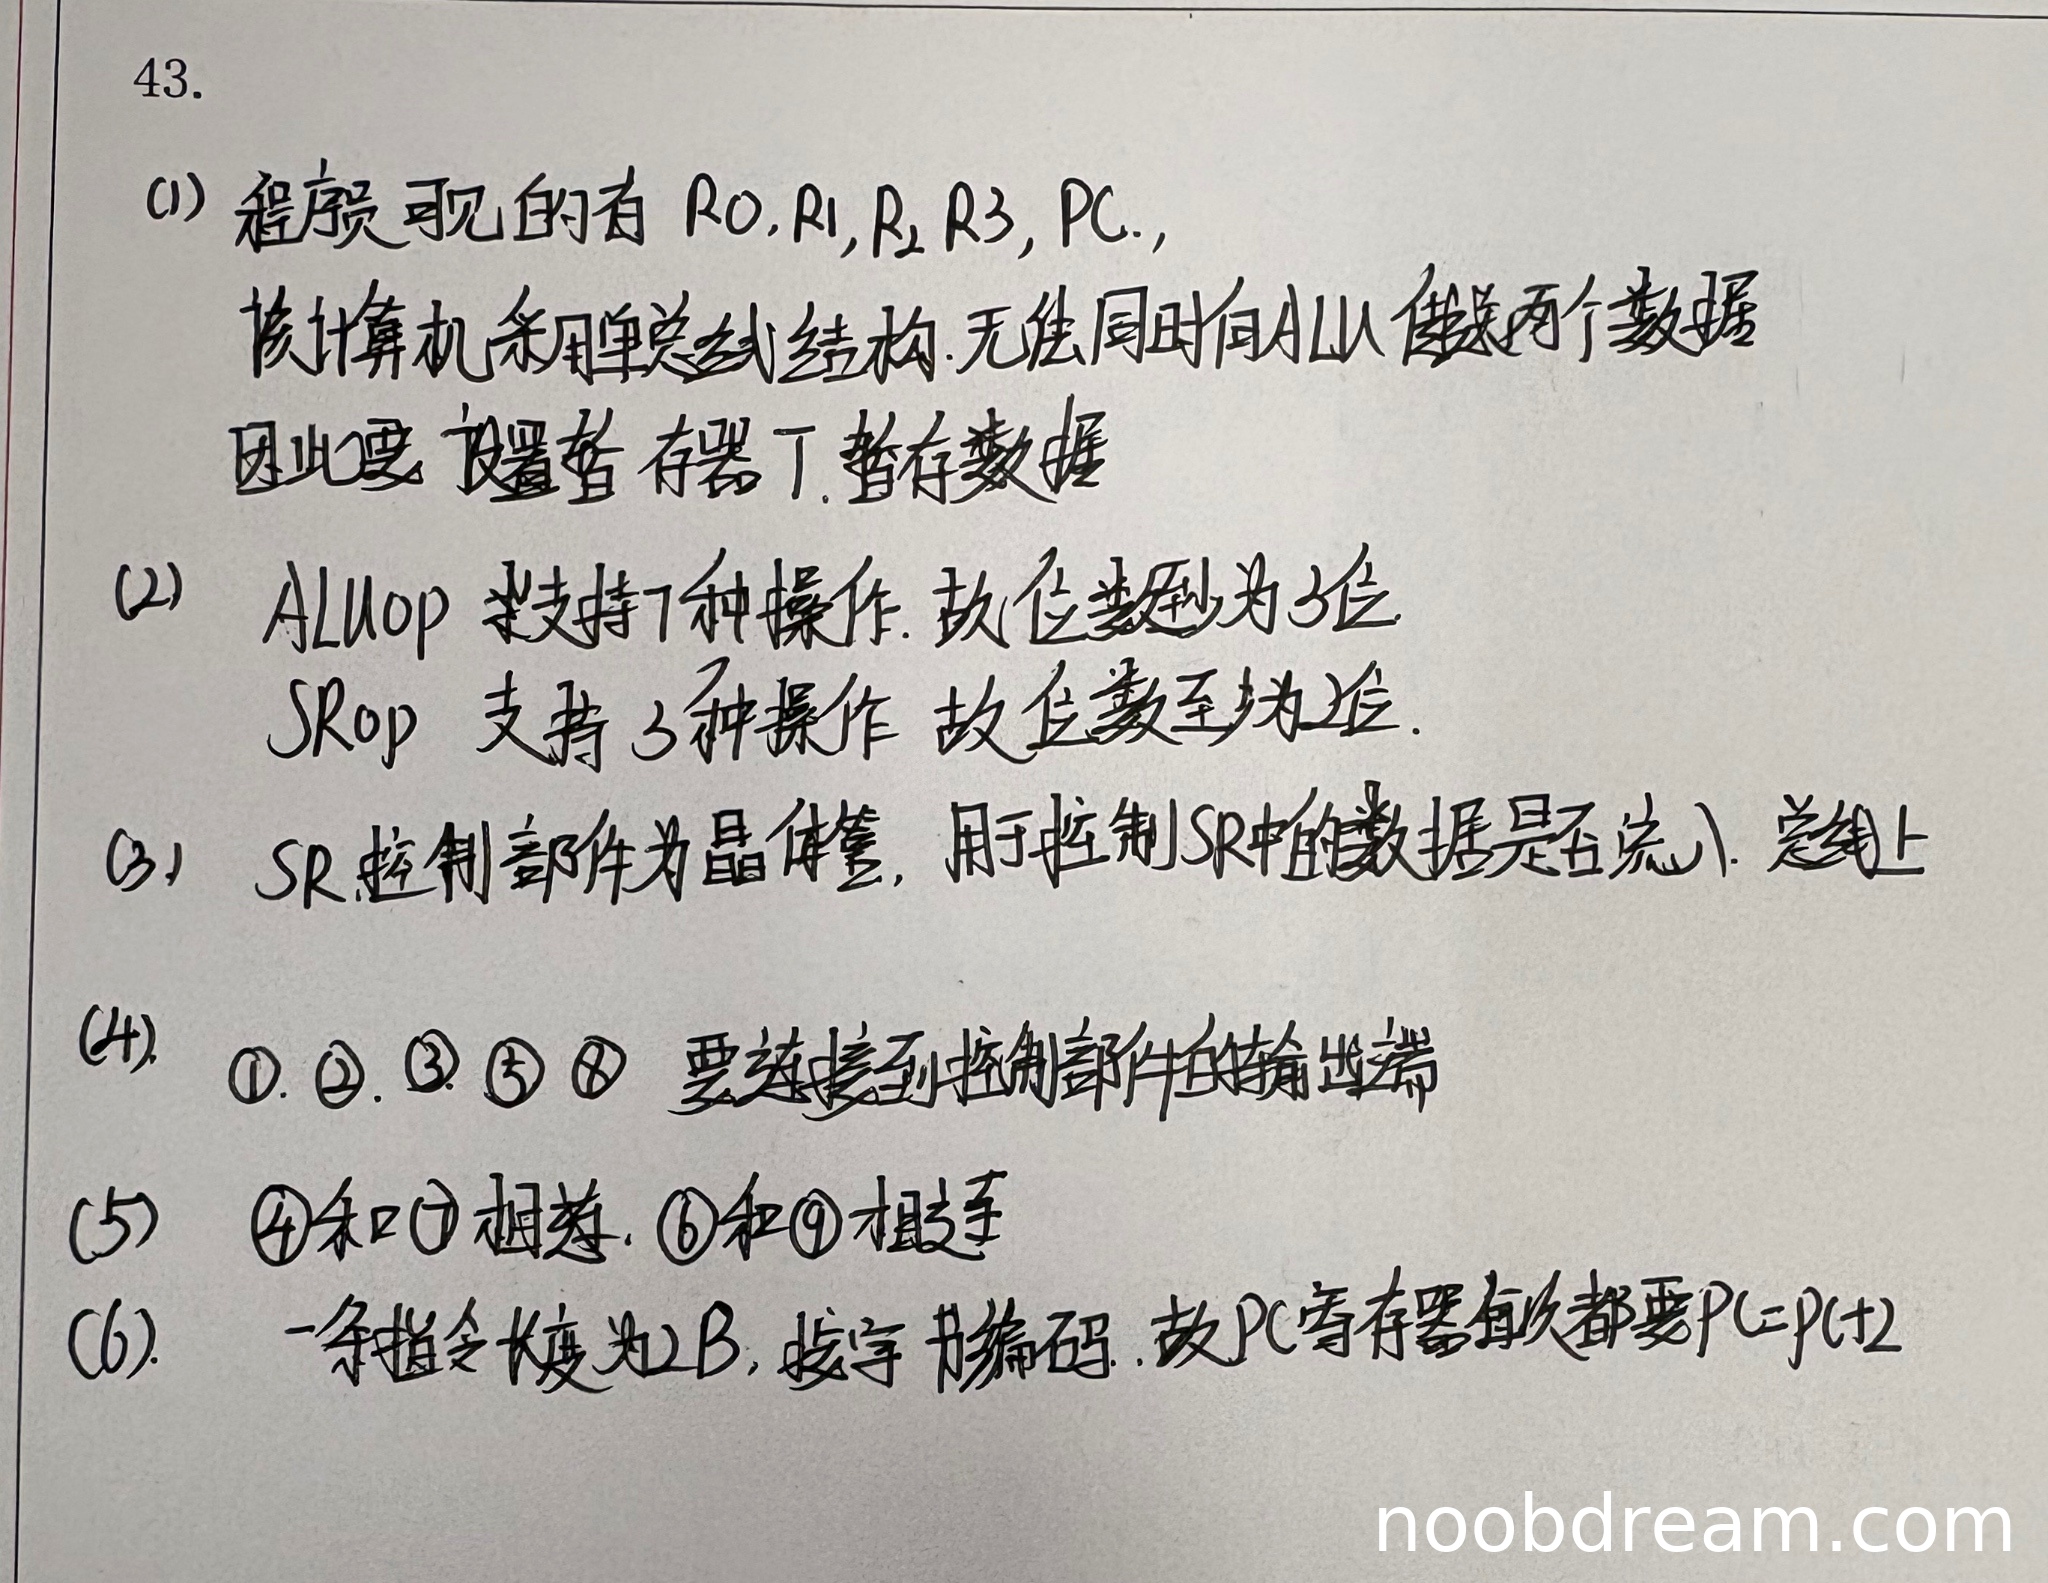 43.
(1) 程序员可见的有 R0, R1, R2 R3, PC.,
该计算机采用单总线结构.无法同时向ALU传送两个数据
因此要设置暂存器T.暂存数据
(2) ALUop 支持7种操作.故位数至少为3位.
SRop 支持3种操作 故位数至少为2位.
(3) SR控制部件为晶体管, 用于控制SR中的数据是否流入.总线上
(4). ①.②.③.⑤ ⑧ 要连接到控制部件的输出端
(5) ④和⑦相连.⑥和⑨相连
(6). 一条指令长度为2B,按字节编码.故PC寄存器每次都要PC=PC+2
noobdream.com